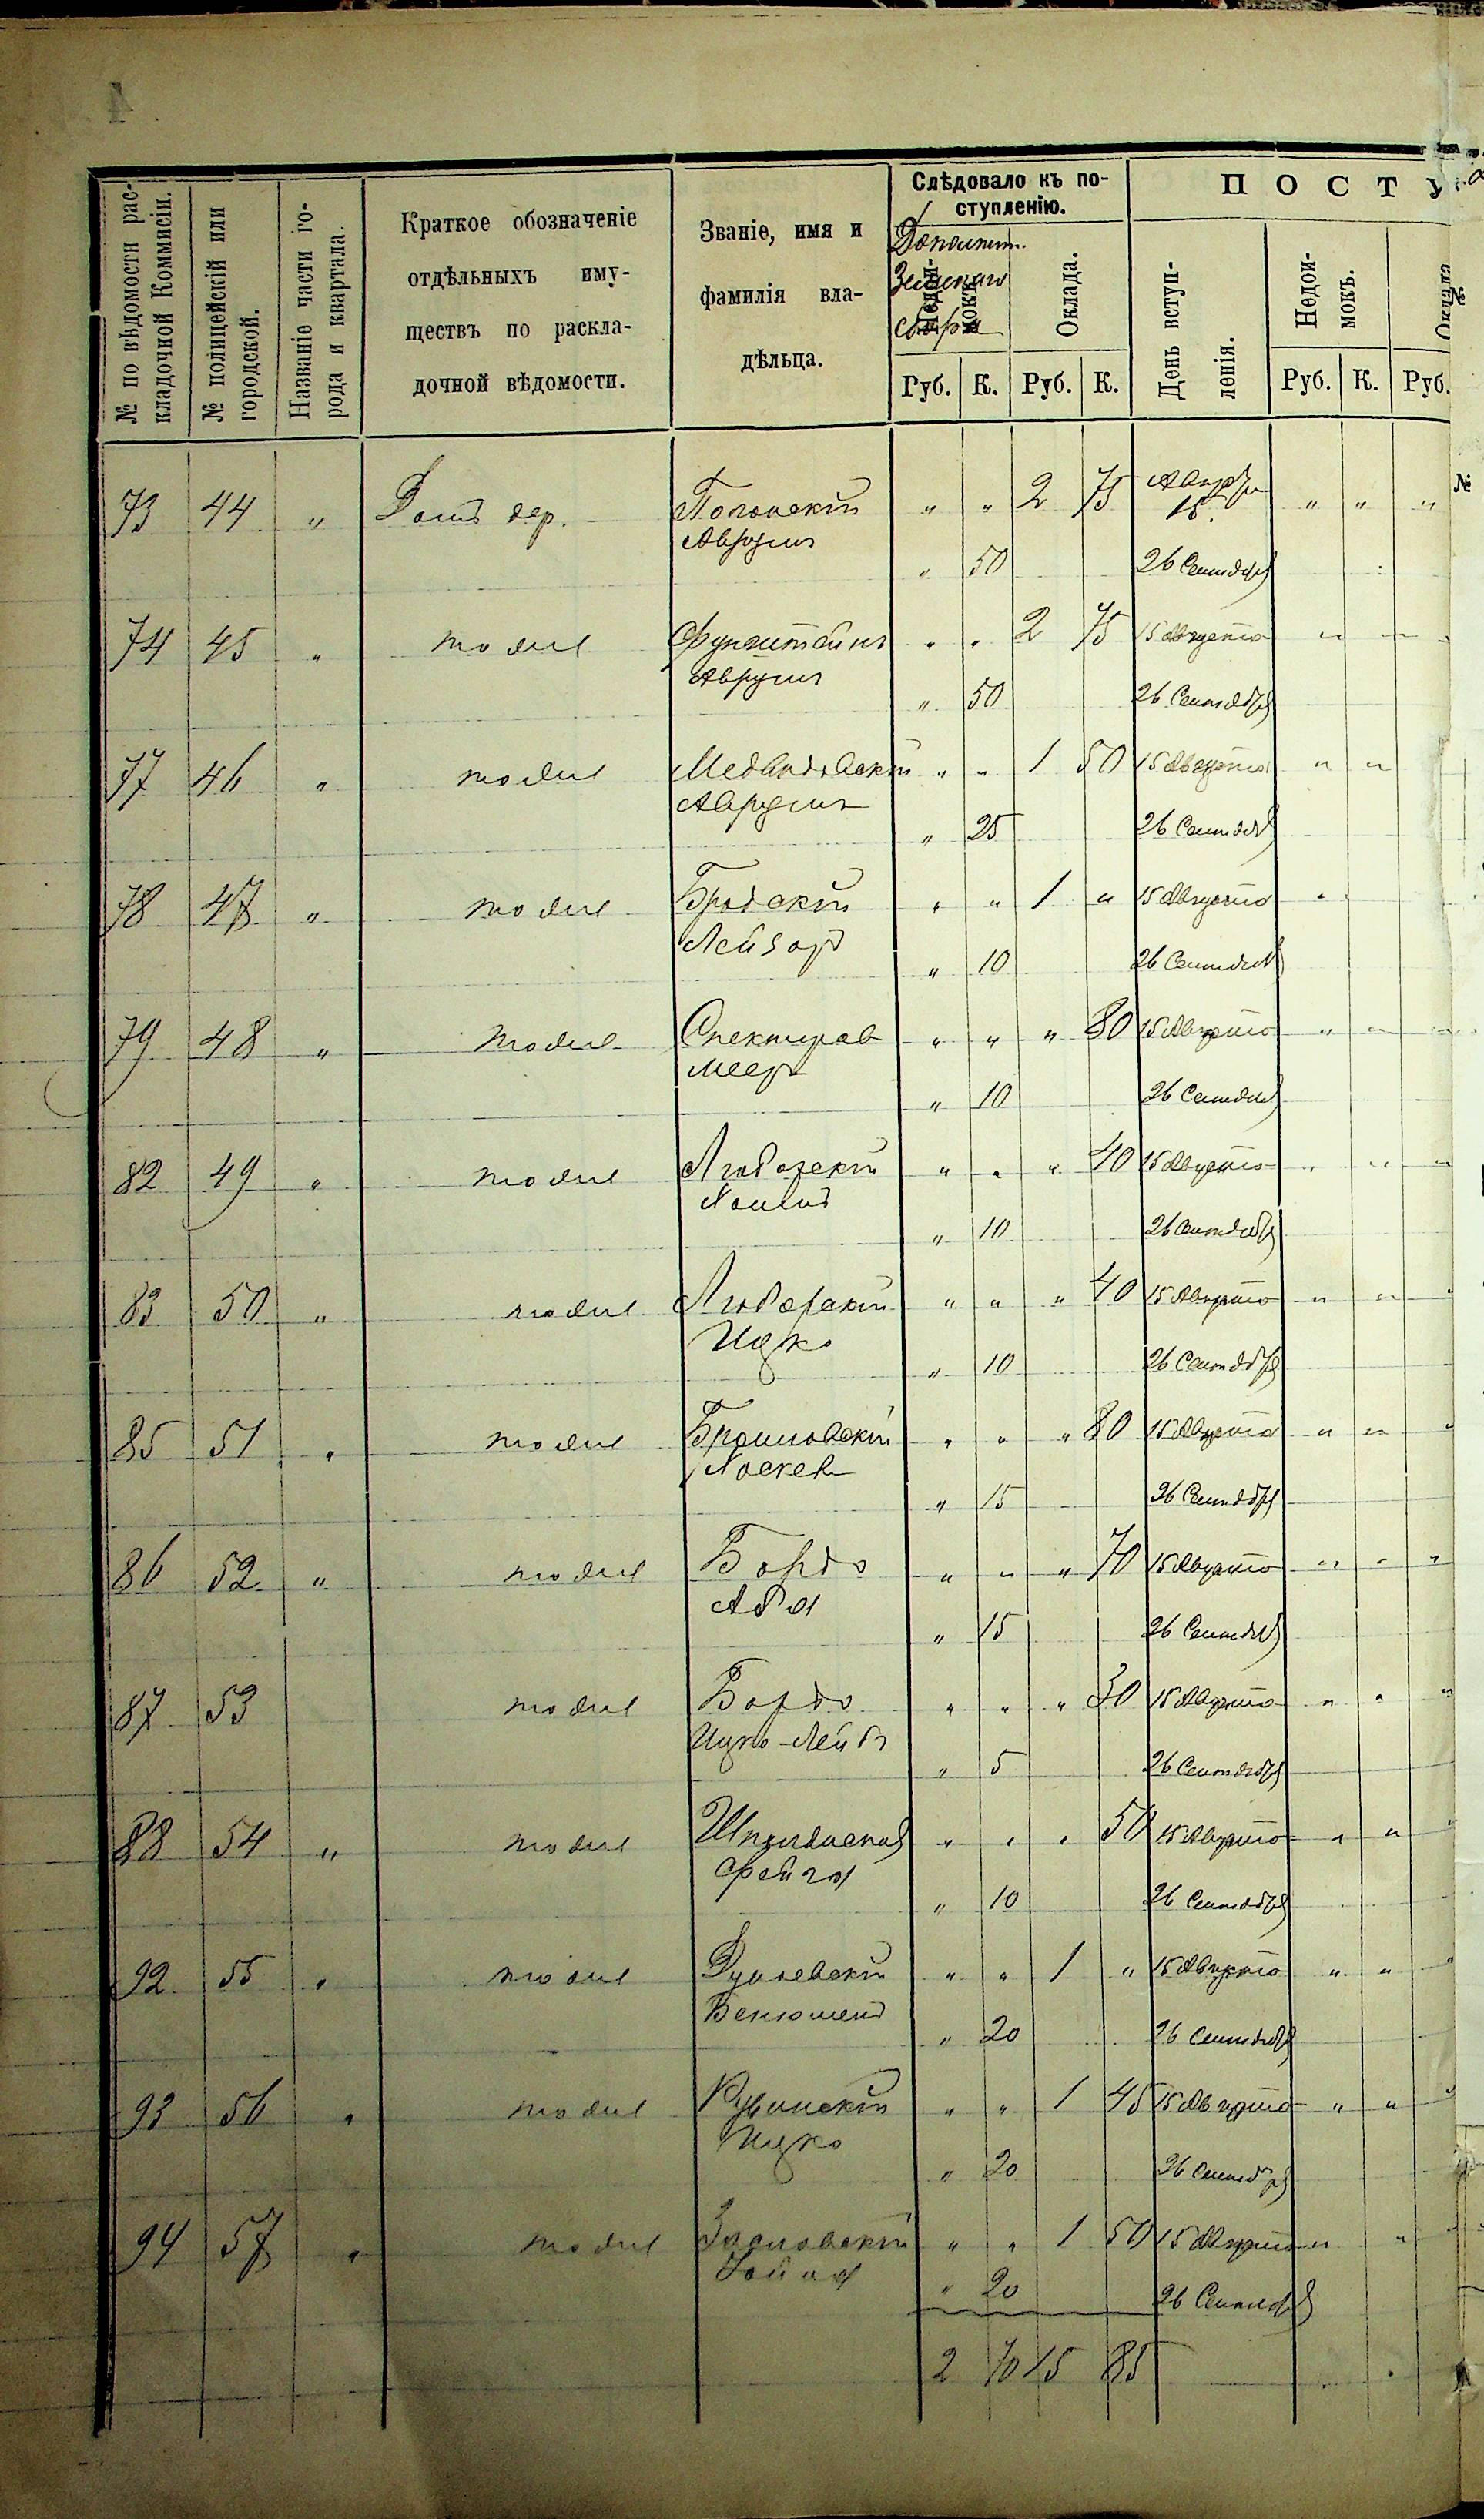 № по вѣдомости рас-
кладочной Коммисіи.
№ полицейскій или
городской.
Названіе части го-
рода и квартала.
Краткое обозначеніе
отдѣльныхъ иму-
ществъ по раскла-
дочной вѣдомости.
Званіе, имя и
фамилія вла-
дѣльца.
Слѣдовало къ по-
ступленію.
Дополнит.
Земскаго
сбора
Недои-
мокъ
Оклада.
Руб. К. Руб. К.
ПОСТУ
День вступ-
ленія.
Недои-
мокъ.
Оклада
Руб. К. Руб.
№
№
73 44 " Домъ дер. Полонскій " " 2 75 Августа 15. " " "
Аврумъ
" 50 26 Сентября
74 45 " тоже " " 2 75 15 Августа " "
Аврумъ
" 50 26 Сентября
77 46 " тоже Медвѣдовскій " " 1 50 15 Августа " "
Аврумъ
" 25 26 Сентября
78 47 " тоже Бродскій " " 1 " 15 Августа "
Лейзоръ
" 10 26 Сентября
79 48 " тоже " " " 80 15 Августа " " "
Мееръ
" 10 26 Сентября
82 49 " тоже Любарскій " " " 40 15 Августа " " "
" 10 26 Сентября
83 50 " тоже Любарскій " " " 40 15 Августа " " "
Ицко
" 10 26 Сентября
85 51 " тоже " " " 80 15 Августа " " "
" 15 26 Сентября
86 52 " тоже Бордо " " " 70 15 Августа " " "
Аба
" 15 26 Сентября
87 53 тоже Бордо " " " 30 15 Августа " " "
Ицко-Лейбъ
" 5 26 Сентября
88 54 " тоже " " " 50 15 Августа " " "
Фейга
" 10 26 Сентября
92 55 " тоже " " 1 " 15 Августа " " "
" 20 26 Сентября
93 56 " тоже " " 1 45 15 Августа " " "
Ицко
" 20 26 Сентября
94 57 " тоже Заславскій " " 1 50 15 Августа " " "
" 20 26 Сентября
2 70 15 85